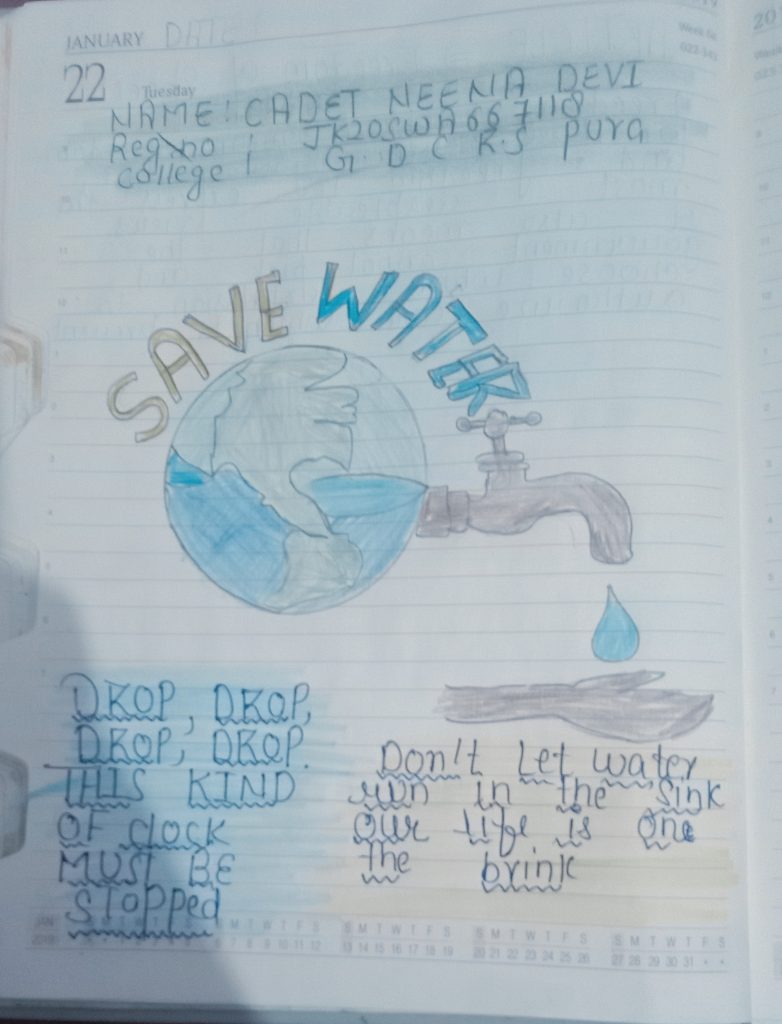 JANUARY DATE
22 Tuesday
NAME: CADET NEENA DEVI
Reg.no : JK20SWA667118
College : G. D C R.S Pura
SAVE WATER
DROP, DROP,
DROP, DROP.
THIS KIND
OF clock
MUST BE
stopped
Don't Let water
run in the Sink
our life is one
the brink
S M T W T F S
6 7 8 9 10 11 12
S M T W T F S
13 14 15 16 17 18 19
S M T W T F S
20 21 22 23 24 25 26
S M T W T F S
27 28 29 30 31 • •